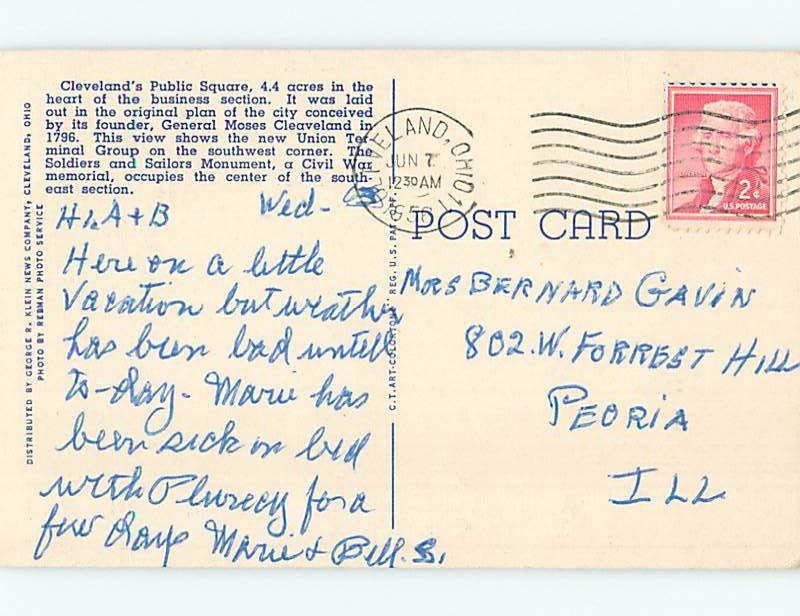 Cleveland's Public Square, 4.4 acres in the
heart of the business section. It was laid
out in the original plan of the city conceived
by its founder, General Moses Cleaveland in
1796. This view shows the new Union Ter
minal Group on the southwest corner. The
Soldiers and Sailors Monument, a Civil War
memorial, occupies the center of the south-
east section.
DISTRIBUTED BY GEORGE R. KLEIN NEWS COMPANY, CLEVELAND, OHIO
PHOTO BY REBMAN PHOTO SERVICE
Hi, A + B Wed-
Here on a little
Vacation but weather
has been bad untill
to-day- Marie has
been sick in bed
with Plurecy for a
few days Marie + Bill. S.
C.T. ART-COLORTONE REG. U.S. PAT. OFF.
CLEVELAND, OHIO 11
JUN 7
12 30 AM
POST CARD
2¢
U.S. POSTAGE
Mrs BERNARD GAVIN
802. W. FORREST HILL
PEORIA
ILL